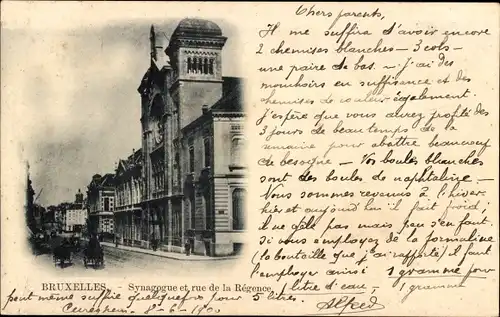 Chers parents,
Il me suffira d'avoir encore
2 chemises blanches – 3 cols –
une paire de bas. – j'ai des
mouchoirs en suffisance et des
chemises de couleur également.
J'espère que vous avez profité des
3 jours de beau temps de la
semaine pour abattre beaucoup
de besogne – Vos boules blanches
sont des boules de naphtaline –
Nous sommes revenus à l'hiver
hier et aujourd'hui il fait froid;
il ne gèle pas mais peu s'en faut
si vous employez de la formaline
(la bouteille que j'ai rapportée) il faut
l'employer ainsi 1 gramme pour
1 litre d'eau, 1 gramme
BRUXELLES. – Synagogue et rue de la Régence.
peut même suffire quelquefois pour 5 litres.
Cureghem. 8-6-1900 Alfred